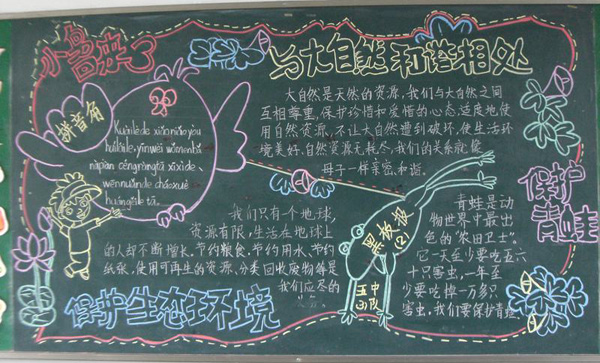 小鸟来了
与大自然和谐相处
拼音角
Kuài lè de xiǎo niǎo yòu
huí lái le, yīn wèi wǒ men bǎ
nà piàn céng ràng tā xī xì de、
wēn nuǎn de cháo xué
huán gěi le tā.
大自然是天然的资源,我们与大自然之间
互相尊重,保护珍惜和爱惜的心态,适度地使
用自然资源,不让大自然遭到破坏,使生活环
境美好、自然资源无耗尽,我们的关系就像
母子一样亲密、和谐。
我们只有一个地球,
资源有限,生活在地球上
的人却不断增长。节约粮食、节约用水、节约
纸张、使用可再生的资源、分类回收废物等是
我们应尽的
黑板报
(2)
五(2)中队
保护青蛙
青蛙是动
物世界中最出
色的“农田卫士”。
它一天至少要吃五六
十只害虫,一年至
少要吃掉一万多只
害虫,我们要保护青蛙
保护生态环境